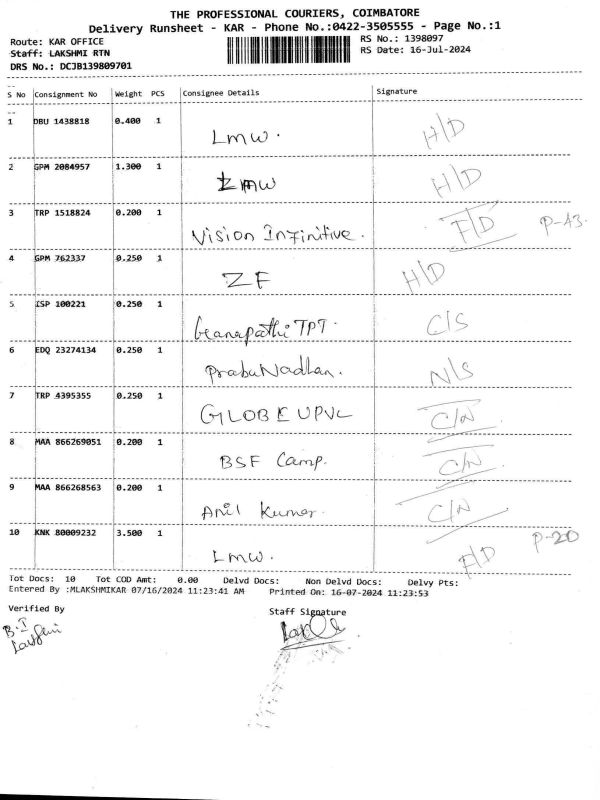 THE PROFESSIONAL COURIERS, COIMBATORE
Delivery Runsheet - KAR - Phone No.:0422-3505555 - Page No.:1
Route: KAR OFFICE RS No.: 1398097
Staff: LAKSHMI RTN RS Date: 16-Jul-2024
DRS No.: DCJB139809701
S No Consignment No Weight PCS Consignee Details Signature
1 DBU 1438818 0.400 1 Lmw. H/D
2 GPM 2084957 1.300 1 Lmw H/D
3 TRP 1518824 0.200 1 Vision Infinitive. F/D P-43.
4 GPM 762337 0.250 1 ZF H/D
5 ISP 100221 0.250 1 Ganapathi TPT. C/S
6 EDQ 23274134 0.250 1 Prabu Nadhan. N/S
7 TRP 4395355 0.250 1 GLOBE UPVC C/N
8 MAA 866269051 0.200 1 BSF Camp. C/N
9 MAA 866268563 0.200 1 Anil Kumar. C/N
10 KNK 80009232 3.500 1 Lmw. F/D P-20
Tot Docs: 10 Tot COD Amt: 0.00 Delvd Docs: Non Delvd Docs: Delvy Pts:
Entered By :MLAKSHMIKAR 07/16/2024 11:23:41 AM Printed On: 16-07-2024 11:23:53
Verified By Staff Signature
B.I